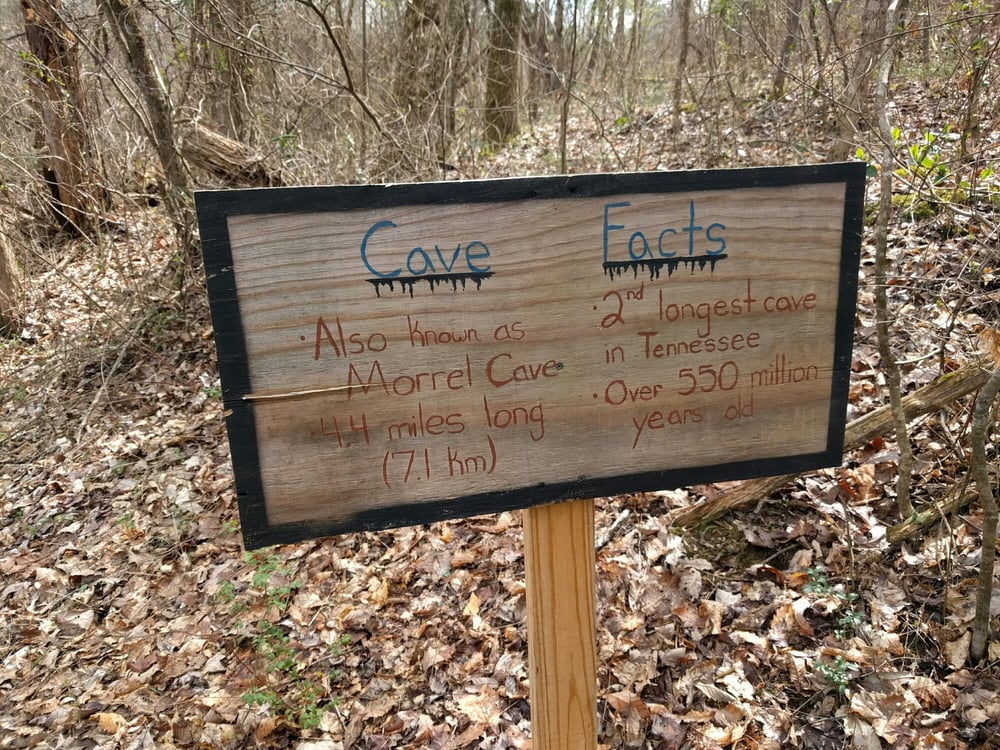 Cave Facts
· Also known as
Morrel Cave
· 4.4 miles long
(7.1 km)
· 2nd longest cave
in Tennessee
· Over 550 million
years old